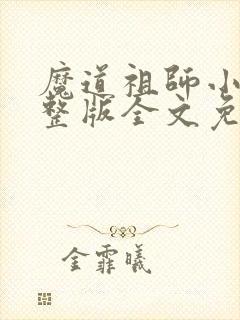 魔道祖師小
整版全文免
金霏曦